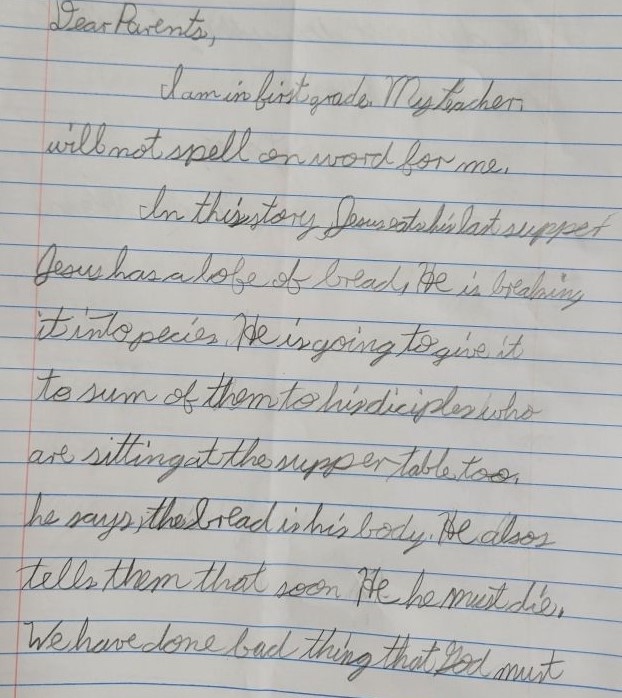 Dear Parents,
I am in first grade. My teacher
will not spell on word for me.
In this story Jesus eats his last supper
Jesus has a lofe of bread, He is breaking
it into pecies. He is going to give it
to sum of them to his diciples who
are sitting at the supper table too.
he says, the bread is his body. He alsos
tells them that soon He he must die.
We have done bad thing that God must